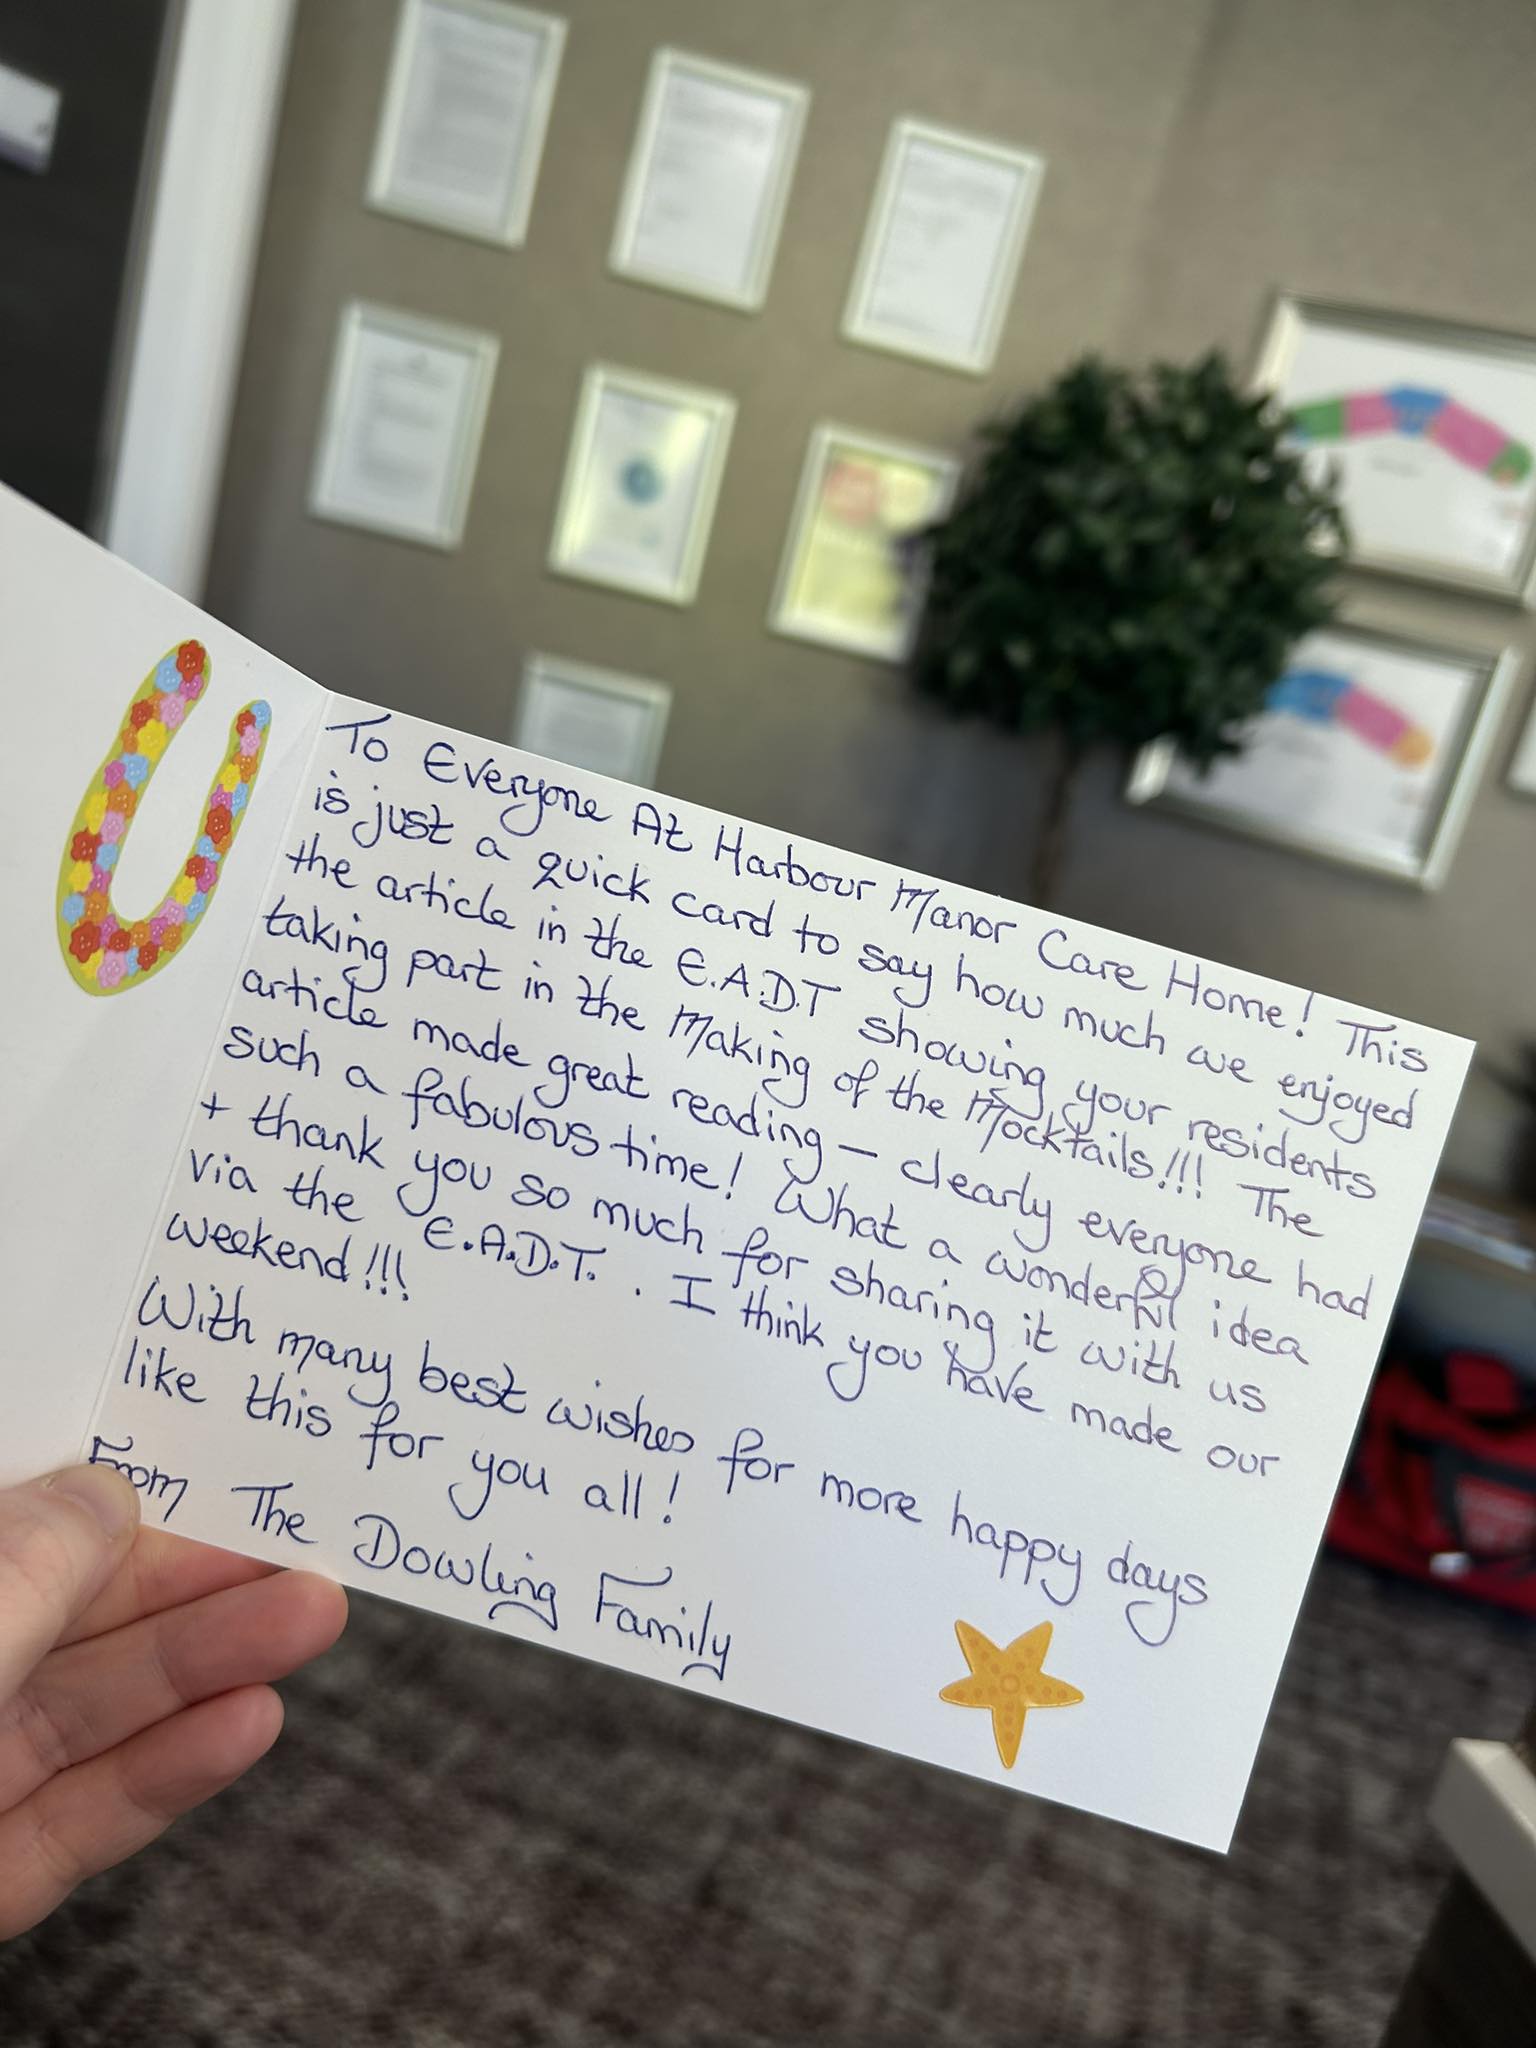 To Everyone At Harbour Manor Care Home! This
is just a quick card to say how much we enjoyed
the article in the E.A.D.T showing your residents
taking part in the Making of the Mocktails!!! The
article made great reading – clearly everyone had
such a fabulous time! What a wonderful idea
+ thank you so much for sharing it with us
via the E.A.D.T. . I think you have made our
weekend!!!
With many best wishes for more happy days
like this for you all!
From The Dowling Family